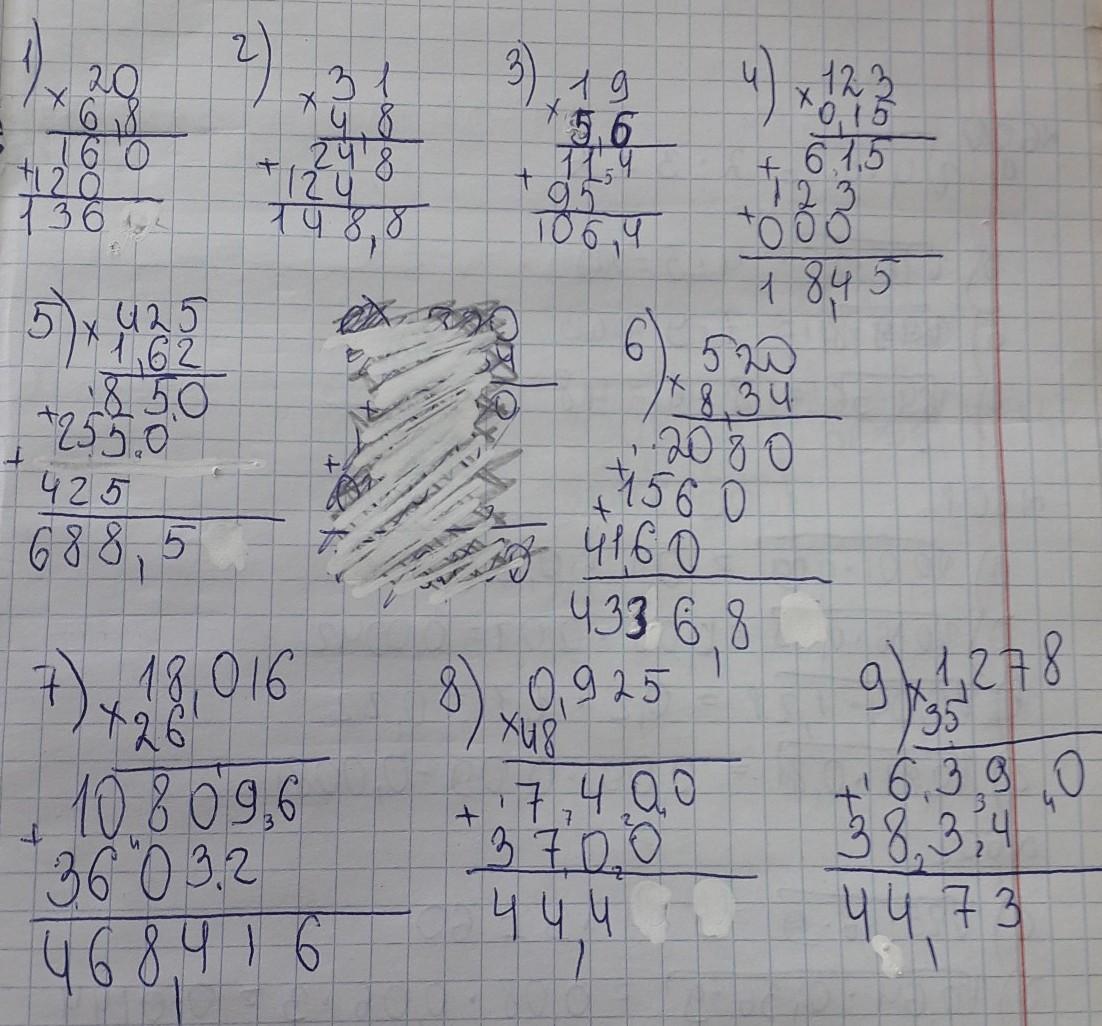 1)
× 20
6,8
160
+ 120
136
2)
× 31
4,8
248
+ 124
148,8
3)
× 19
5,6
114
+ 95
106,4
4)
× 123
0,15
+ 615
+ 123
000
18,45
5)
× 425
1,62
850
+ 2550
+ 425
688,5
6)
× 520
8,34
2080
+ 1560
+ 4160
4336,8
7)
× 18,016
26
108096
+ 36032
468,416
8)
0,925
× 48
7400
+ 3700
44,4
9)
× 1,278
35
6390
+ 3834
44,73